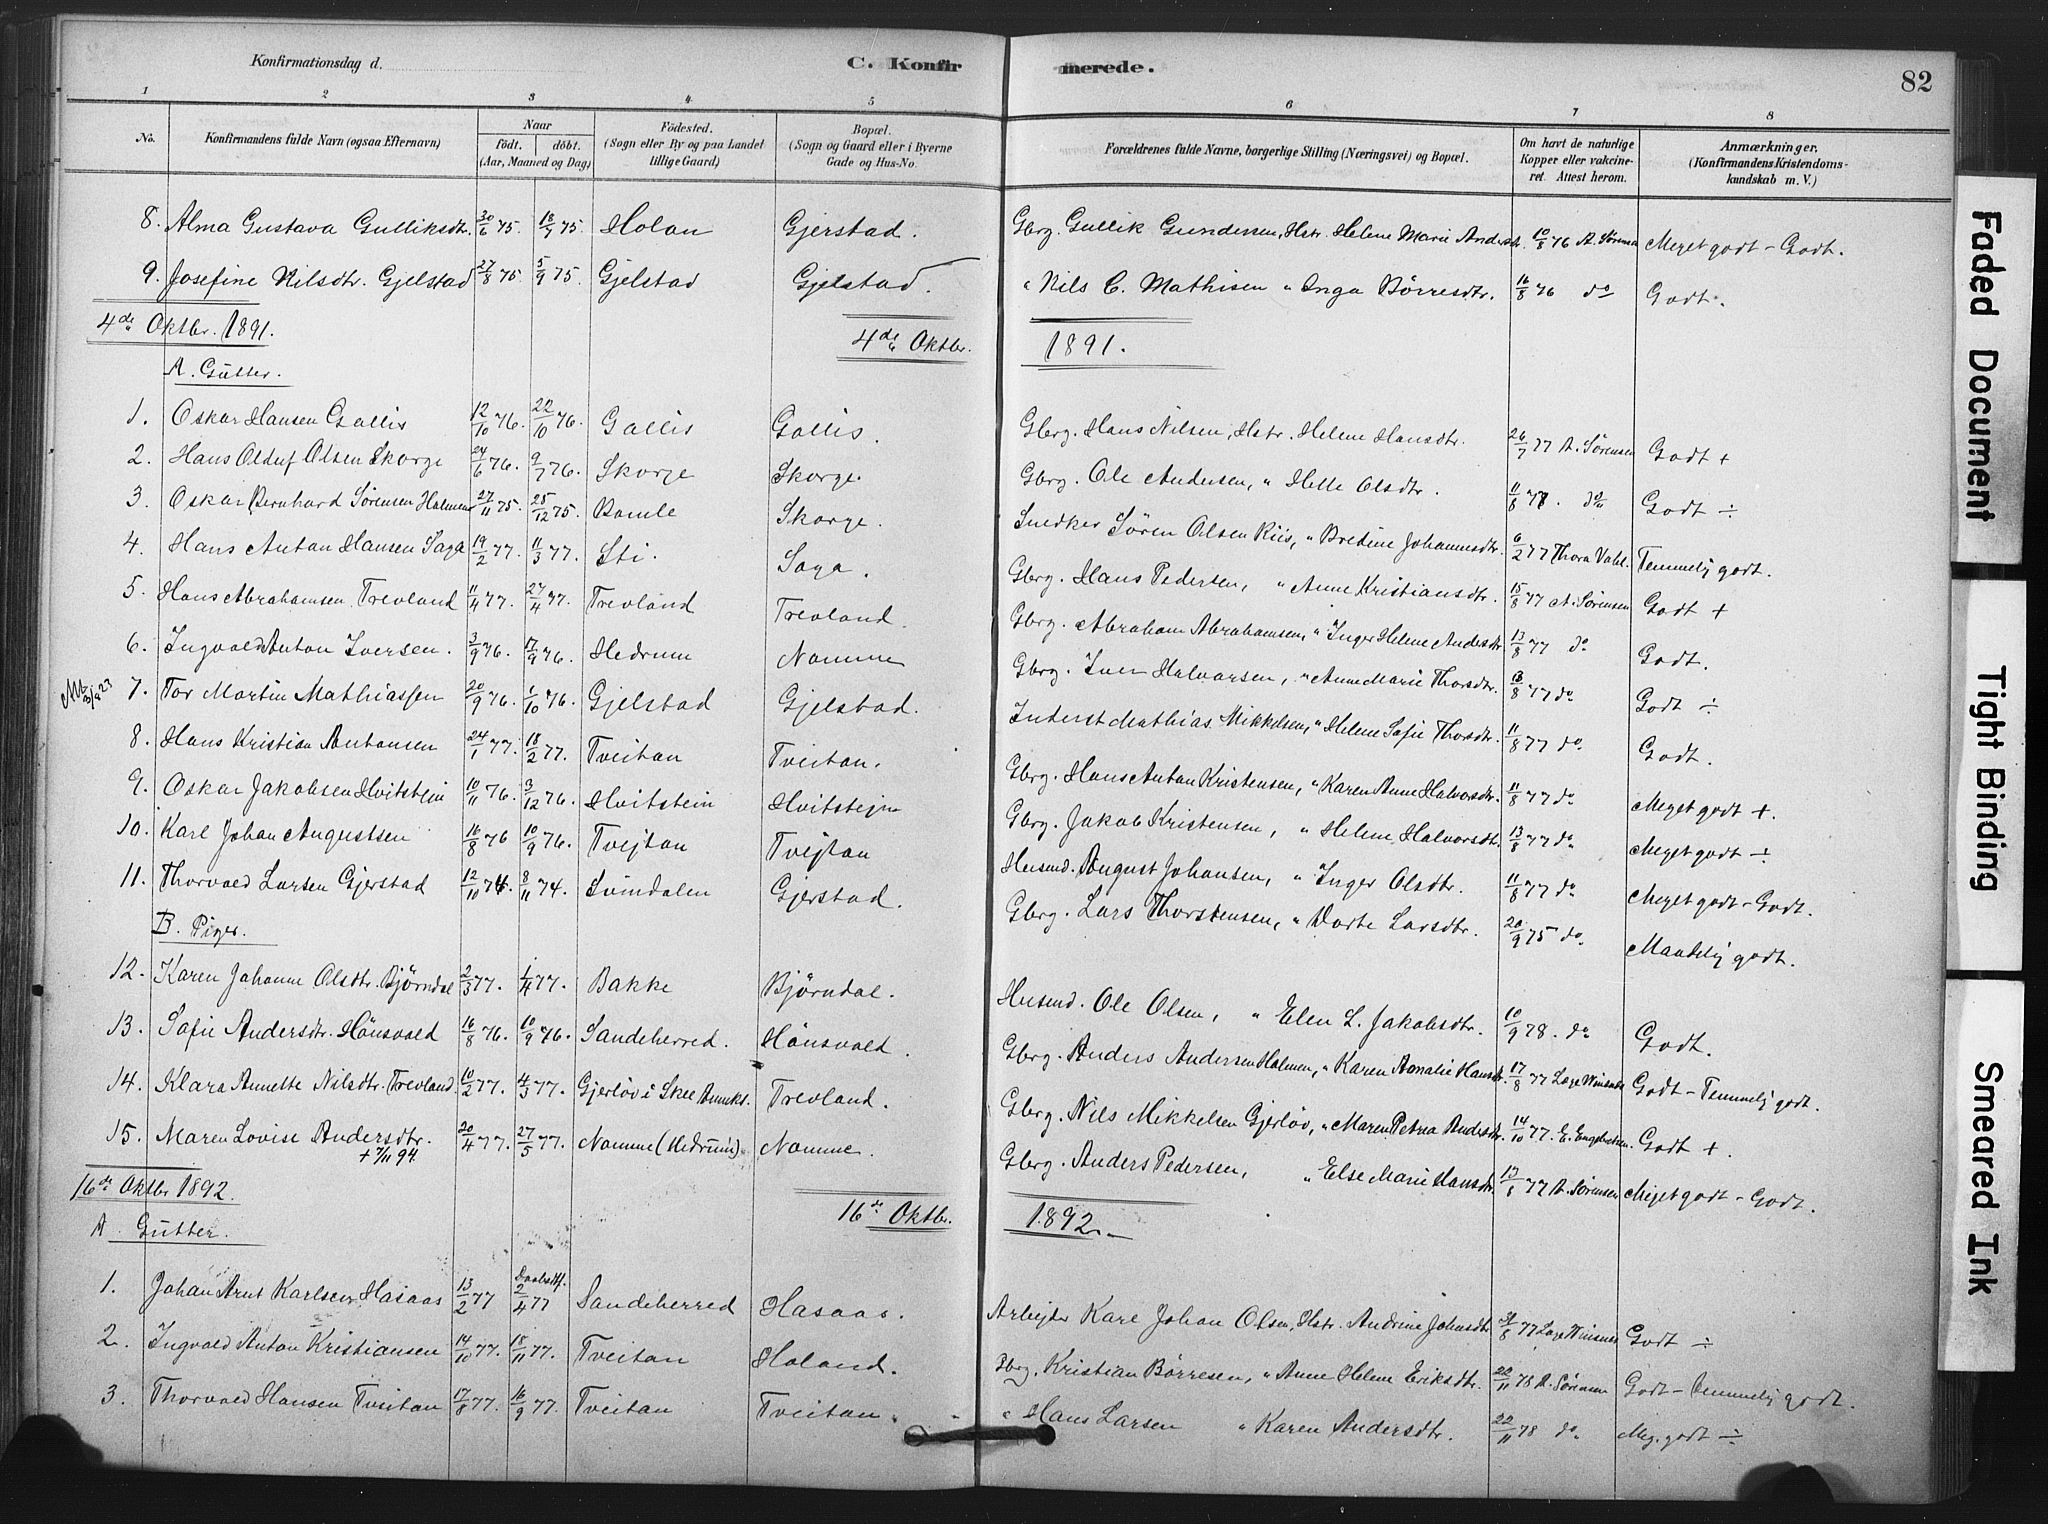 Konfirmationsdag d. C. Konfirmerede. 82
1 2 3 4 5 6 7 8
No. Konfirmandens fulde Navn (ogsaa Efternavn) Naar født. døbt. (Aar, Maaned og Dag) Fødested. (Sogn eller By og paa Landet tillige Gaard) Bopæl. (Sogn og Gaard eller i Byerne Gade og Hus-No. Forældrenes fulde Navne, borgerlige Stilling (Næringsvei) og Bopæl. Om havt de naturlige Kopper eller vakcineret. Attest herom. Anmærkninger. (Konfirmandens Kristendomskundskab m. V.)
8. Alma Gustava Gulliksdtr. 30/6 75. 18/7 75. Holan Gjerstad. Gbrg. Gullik Gundersen, Hstr. Helene Marie Andersdtr. 10/8 76 A. Sørensen Meget godt - Godt.
9. Josefine Nilsdtr. Gjelstad 27/8 75. 5/9 75. Gjelstad Gjelstad. " Nils C. Mathisen " Inga Börresdtr. 16/8 76 do Godt.
4de Oktbr. 1891. 4de Oktbr. 1891.
A. Gutter.
1. Oskar Hansen Gallis 12/10 76. 22/10 76. Gallis Gallis. Gbrg. Hans Nilsen, Hstr. Helene Hansdtr. 26/7 77 A. Sørensen Godt +
2. Hans Olduf Olsen Skorge 24/6 76. 9/7 76. Skorge Skorge. Gbrg. Ole Andersen, " Helle Olsdtr. 11/8 77. do Godt ÷
3. Oskar Bernhard Sørensen Holmen 27/11 75. 25/12 75. Bamle Skorge. Snedker Sören Olsen Riis, " Bredine Johannsdtr. 6/2 77 Thora Vahl. Temmelig godt.
4. Hans Anton Hansen Saga 19/2 77. 11/3 77. Sti. Saga. Gbrg. Hans Pedersen, " Anne Kristiansdtr. 15/8 77 A. Sørensen Godt +
5. Hans Abrahamsen Trevland 11/4 77. 27/4 77. Trevland Trevland. Gbrg. Abraham Abrahamsen, " Inger Helene Andersdtr. 13/8 77 do Godt.
6. Ingvald Anton Iversen. 3/9 76. 17/9 76. Hedrum Namme Gbrg. Iver Halvorsen, " Anne Marie Thorsdtr. 13/8 77 do. Godt ÷
7. Tor Martin Mathiassen 20/9 76. 1/10 76. Gjelstad Gjelstad. Inderst Mathias Mikkelsen, " Helene Sofie Thorsdtr. 11/8 77 do. Godt.
8. Hans Kristian Antonsen 24/1 77. 18/2 77. Tveitan Tveitan. Gbrg. Hans Anton Kristensen, " Karen Anne Halvorsdtr. 11/8 77 do. Meget godt +.
9. Oskar Jakobsen Hvitstein 10/11 76. 3/12 76. Hvitstein Hvitstejn Gbrg. Jakob Kristensen, " Helene Halvorsdtr. 13/8 77 do. Meget godt ÷
10. Karl Johan Augustsen 16/8 76 10/9 76. Tvejtan Tvejtan Husmd. August Johansen, " Inger Olsdtr. 11/8 77 do. Meget godt - Godt.
11. Thorvald Larsen Gjerstad 12/10 74. 8/11 74. Svindalen Gjerstad. Gbrg. Lars Thorstensen, " Dorte Larsdtr. 20/9 75 do. Maadelig godt.
B. Piger.
12. Karen Johanne Olsdtr. Bjørndal 2/3 77. 1/4 77. Bakke Bjørndal. Husmd. Ole Olsen, " Elen L. Jakobsdtr. 10/9 78. do Godt.
13. Sofie Andersdtr. Hönsvald 16/8 76. 10/9 76. Sandeherred. Hönsvald. Gbrg. Anders Andersen Holmen, " Karen Amalie Hansdtr. 17/8 77 Læge Winsnes Godt - Temmelig godt.
14. Klara Annette Nilsdtr. Trevland. 10/2 77. 4/3 77. Gjerløv i Skee Annexs. Trevland. Gbrg. Nils Mikkelsen Gjerløv, " Maren Petrea Andersdtr. 14/10 77. E. Engebretsen. Godt +.
15. Maren Lovise Andersdtr. + 7/11 94. 20/4 77. 27/5 77. Namme (Hedrum). Namme. Gbrg. Anders Pedersen, " Else Marie Hansdtr. 13/8 77 A. Sørensen Meget godt - Godt.
16de Oktbr 1892. 16de Oktbr. 1892.
A Gutter.
1. Johan Arnt Karlsen Hasaas 13/2 77 2/4 77 Sandeherred Hasaas. Arbejder Karl Johan Olsen, Hstr. Andrine Johnsdtr. 31/8 77 Læge Winsnes Godt ÷
2. Ingvald Anton Kristiansen 14/10 77. 18/11 77. Tveitan Holand. Gbrg. Kristian Börresen, " Anne Helene Eriksdtr. 22/11 78 A. Sørensen Godt - Temmelig godt.
3. Thorvald Hansen Tveitan 17/8 77. 16/9 77. Tveitan Tveitan. " Hans Larsen " Karen Andersdtr. 22/11 78 do. Meg. godt ÷
Faded Document
Tight Binding
Smeared Ink